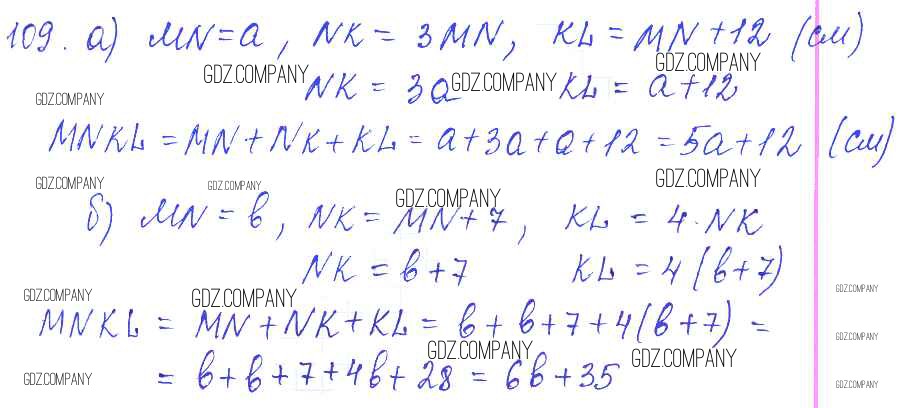 109. а) MN = a, NK = 3MN, KL = MN + 12 (см)
GDZ.COMPANY
GDZ.COMPANY NK = 3a GDZ.COMPANY KL = a + 12
GDZ.COMPANY
MNKL = MN + NK + KL = a + 3a + a + 12 = 5a + 12 (см)
GDZ.COMPANY GDZ.COMPANY GDZ.COMPANY GDZ.COMPANY
б) MN = b, NK = MN + 7, KL = 4 · NK
NK = b + 7 KL = 4(b + 7)
GDZ.COMPANY GDZ.COMPANY GDZ.COMPANY
MNKL = MN + NK + KL = b + b + 7 + 4(b + 7) =
GDZ.COMPANY GDZ.COMPANY GDZ.COMPANY
= b + b + 7 + 4b + 28 = 6b + 35
GDZ.COMPANY GDZ.COMPANY